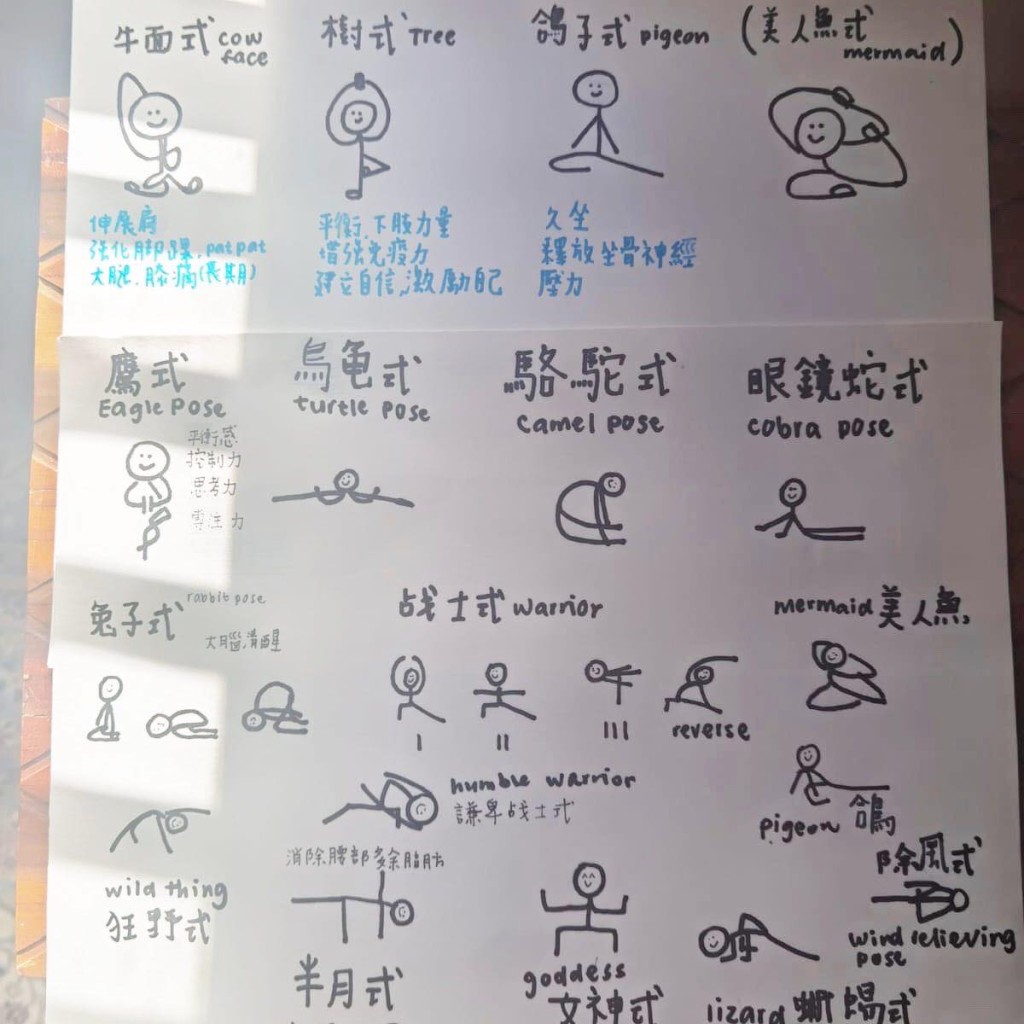 牛面式 cow
face
樹式 Tree
鴿子式 pigeon
(美人魚式
mermaid)
伸展肩
强化脚踝,patpat
大腿,膝痛(長期)
平衡,下肢力量
增强免疫力
建立自信,激勵自己
久坐
釋放坐骨神經
壓力
鷹式
Eagle Pose
平衡感
控制力
思考力
專注力
烏龜式
turtle pose
駱駝式
camel pose
眼鏡蛇式
cobra pose
兔子式 rabbit pose
大腦清醒
战士式 warrior
I
II
III
reverse
mermaid 美人魚
humble warrior
謙卑战士式
pigeon 鴿
wild thing
狂野式
消除腰部多余脂肪
半月式
goddess
女神式
lizard 蜥蜴式
除風式
wind relieving
pose